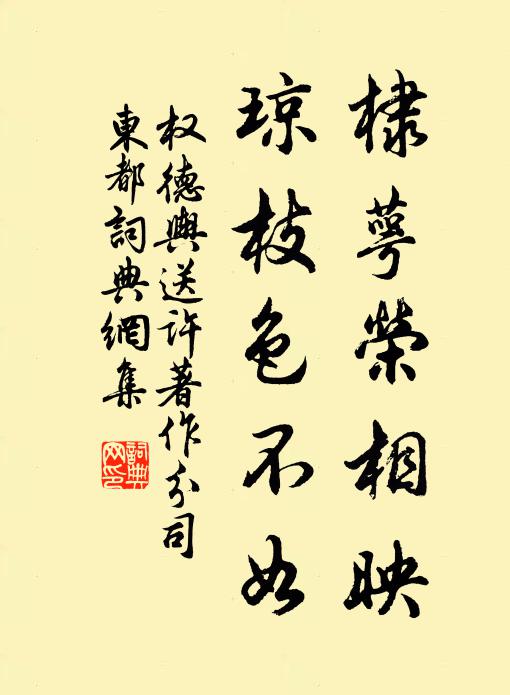 棣萼榮相映
琼枝色不如
权德輿送许著作分司
東都詞典網集
詞典
网印